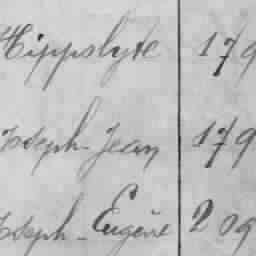 Hippolyte 179
Joseph-Jean 179
Joseph-Eugène 209